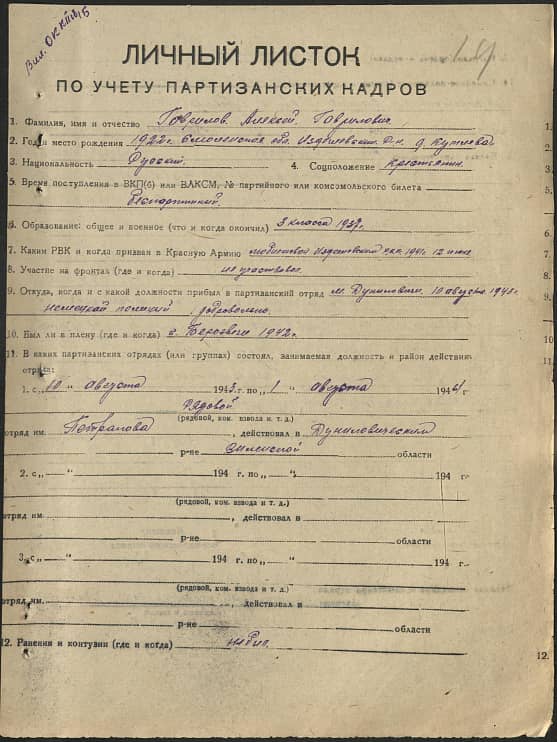 Вил. ОК КП(б)Б
ЛИЧНЫЙ ЛИСТОК
ПО УЧЕТУ ПАРТИЗАНСКИХ КАДРОВ
1. Фамилия, имя и отчество Гаврилов Алексей Гаврилович
2. Год и место рождения 1922 г. Смоленская обл. Издешковский р-н. д.
3. Национальность Русский. 4. Соцположение крестьянин
5. Время поступления в ВКП(б) или ВЛКСМ, № партийного или комсомольского билета
Беспартийный.
6. Образование: общее и военное (что и когда окончил) 3 класса 1937 г.
7. Каким РВК и когда призван в Красную Армию 1941 г. 12
8. Участие на фронтах (где и когда) не участвовал.
9. Откуда, когда и с какой должности прибыл в партизанский отряд м. Дуниловичи. 10 августа 1943 г.
немецкой полиции добровольно.
10. Был ли в плену (где и когда) г. 1942 г.
11. В каких партизанских отрядах (или группах) состоял, занимаемая должность и район действия
отряда:
1. с „10“ августа 1943 г. по „1“ августа 1944 г
Рядовой
(рядовой, ком. взвода и т. д.)
отряд им. , действовал в Дуниловическом
р-не Вилейской области
2. с „ “ 194 г. по „ “ 194 г.
(рядовой, ком. взвода и т. д.)
отряд им. , действовал в
р-не области
3. с „ “ 194 г. по „ “ 194 г.
(рядовой, ком. взвода и т. д.)
отряд им. , действовал в
р-не области
12. Ранения и контузии (где и когда) не был.
1.
2.
3.
5.
6.
7.
8.
9.
10.
11.
12.